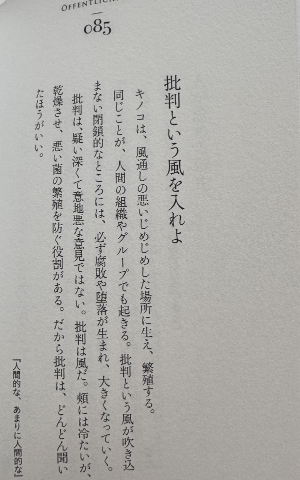 ÖFFENTLICH
085
批判という風を入れよ
キノコは、風通しの悪いじめじめした場所に生え、繁殖する。
同じことが、人間の組織やグループでも起きる。批判という風が吹き込
まない閉鎖的なところには、必ず腐敗や堕落が生まれ、大きくなっていく。
批判は、疑い深くて意地悪な意見ではない。批判は風だ。頬には冷たいが、
乾燥させ、悪い菌の繁殖を防ぐ役割がある。だから批判は、どんどん聞い
たほうがいい。
『人間的な、あまりに人間的な』